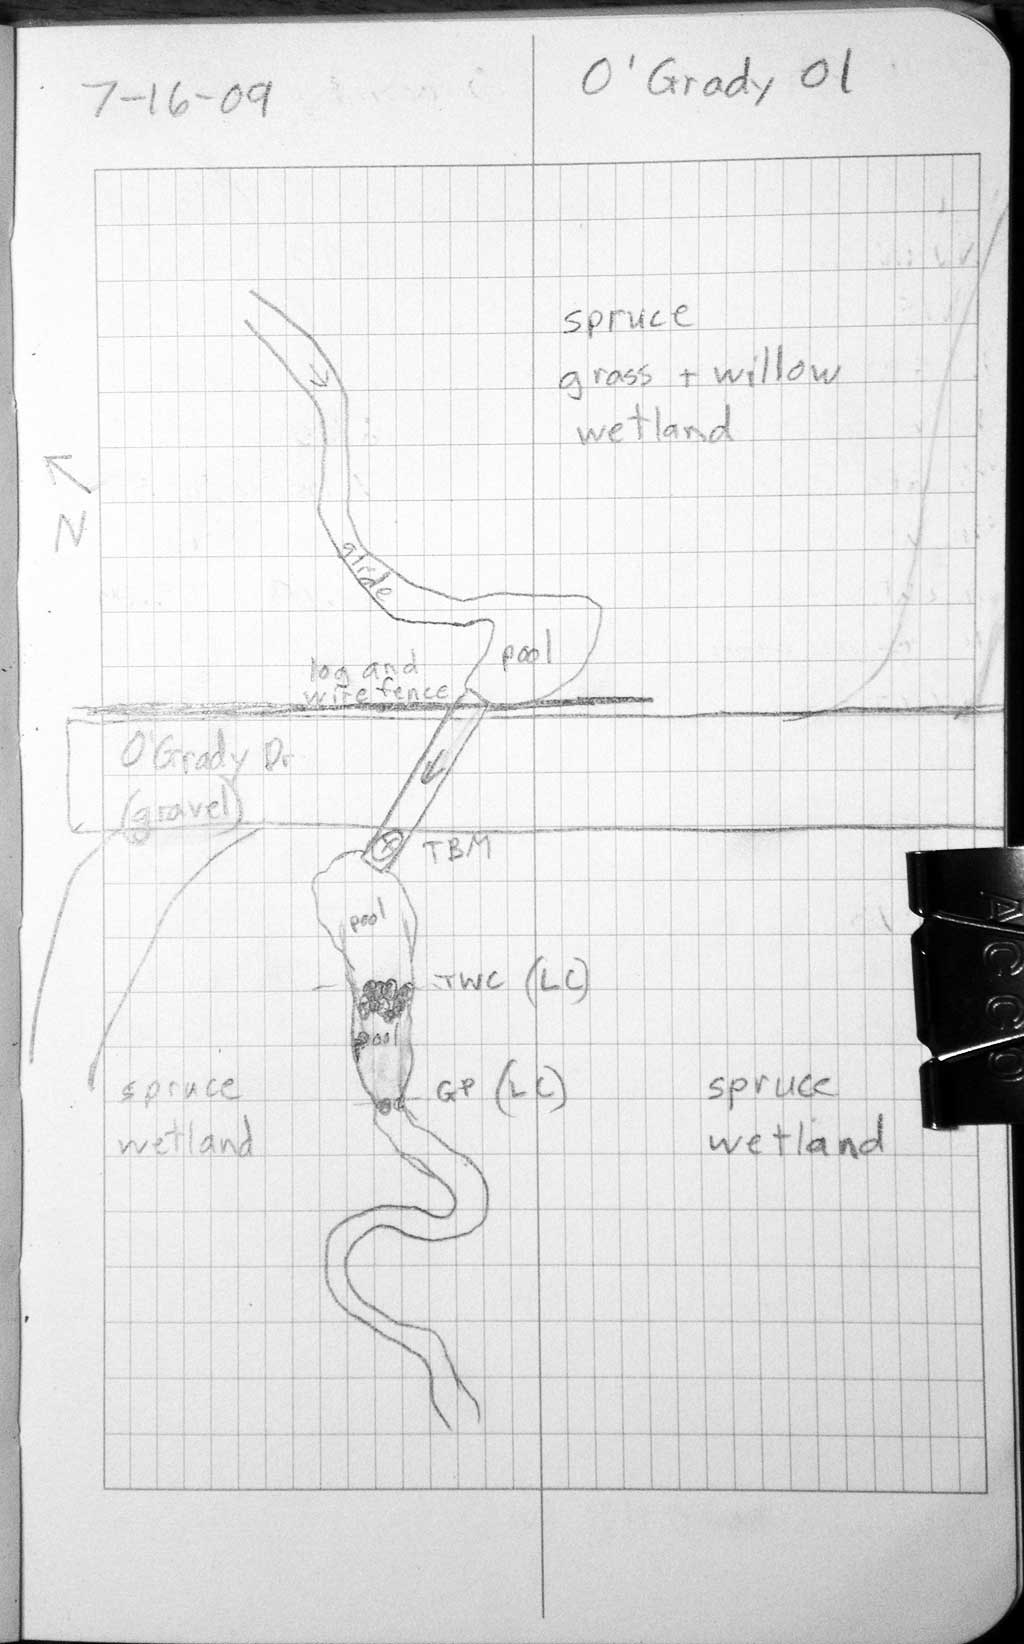 7-16-09
O'Grady 01
spruce
grass + willow
wetland
N
glide
pool
log and
wire fence
O'Grady Dr
(gravel)
TBM
pool
TWC (LC)
pool
GP (LC)
spruce
wetland
spruce
wetland
ACCO